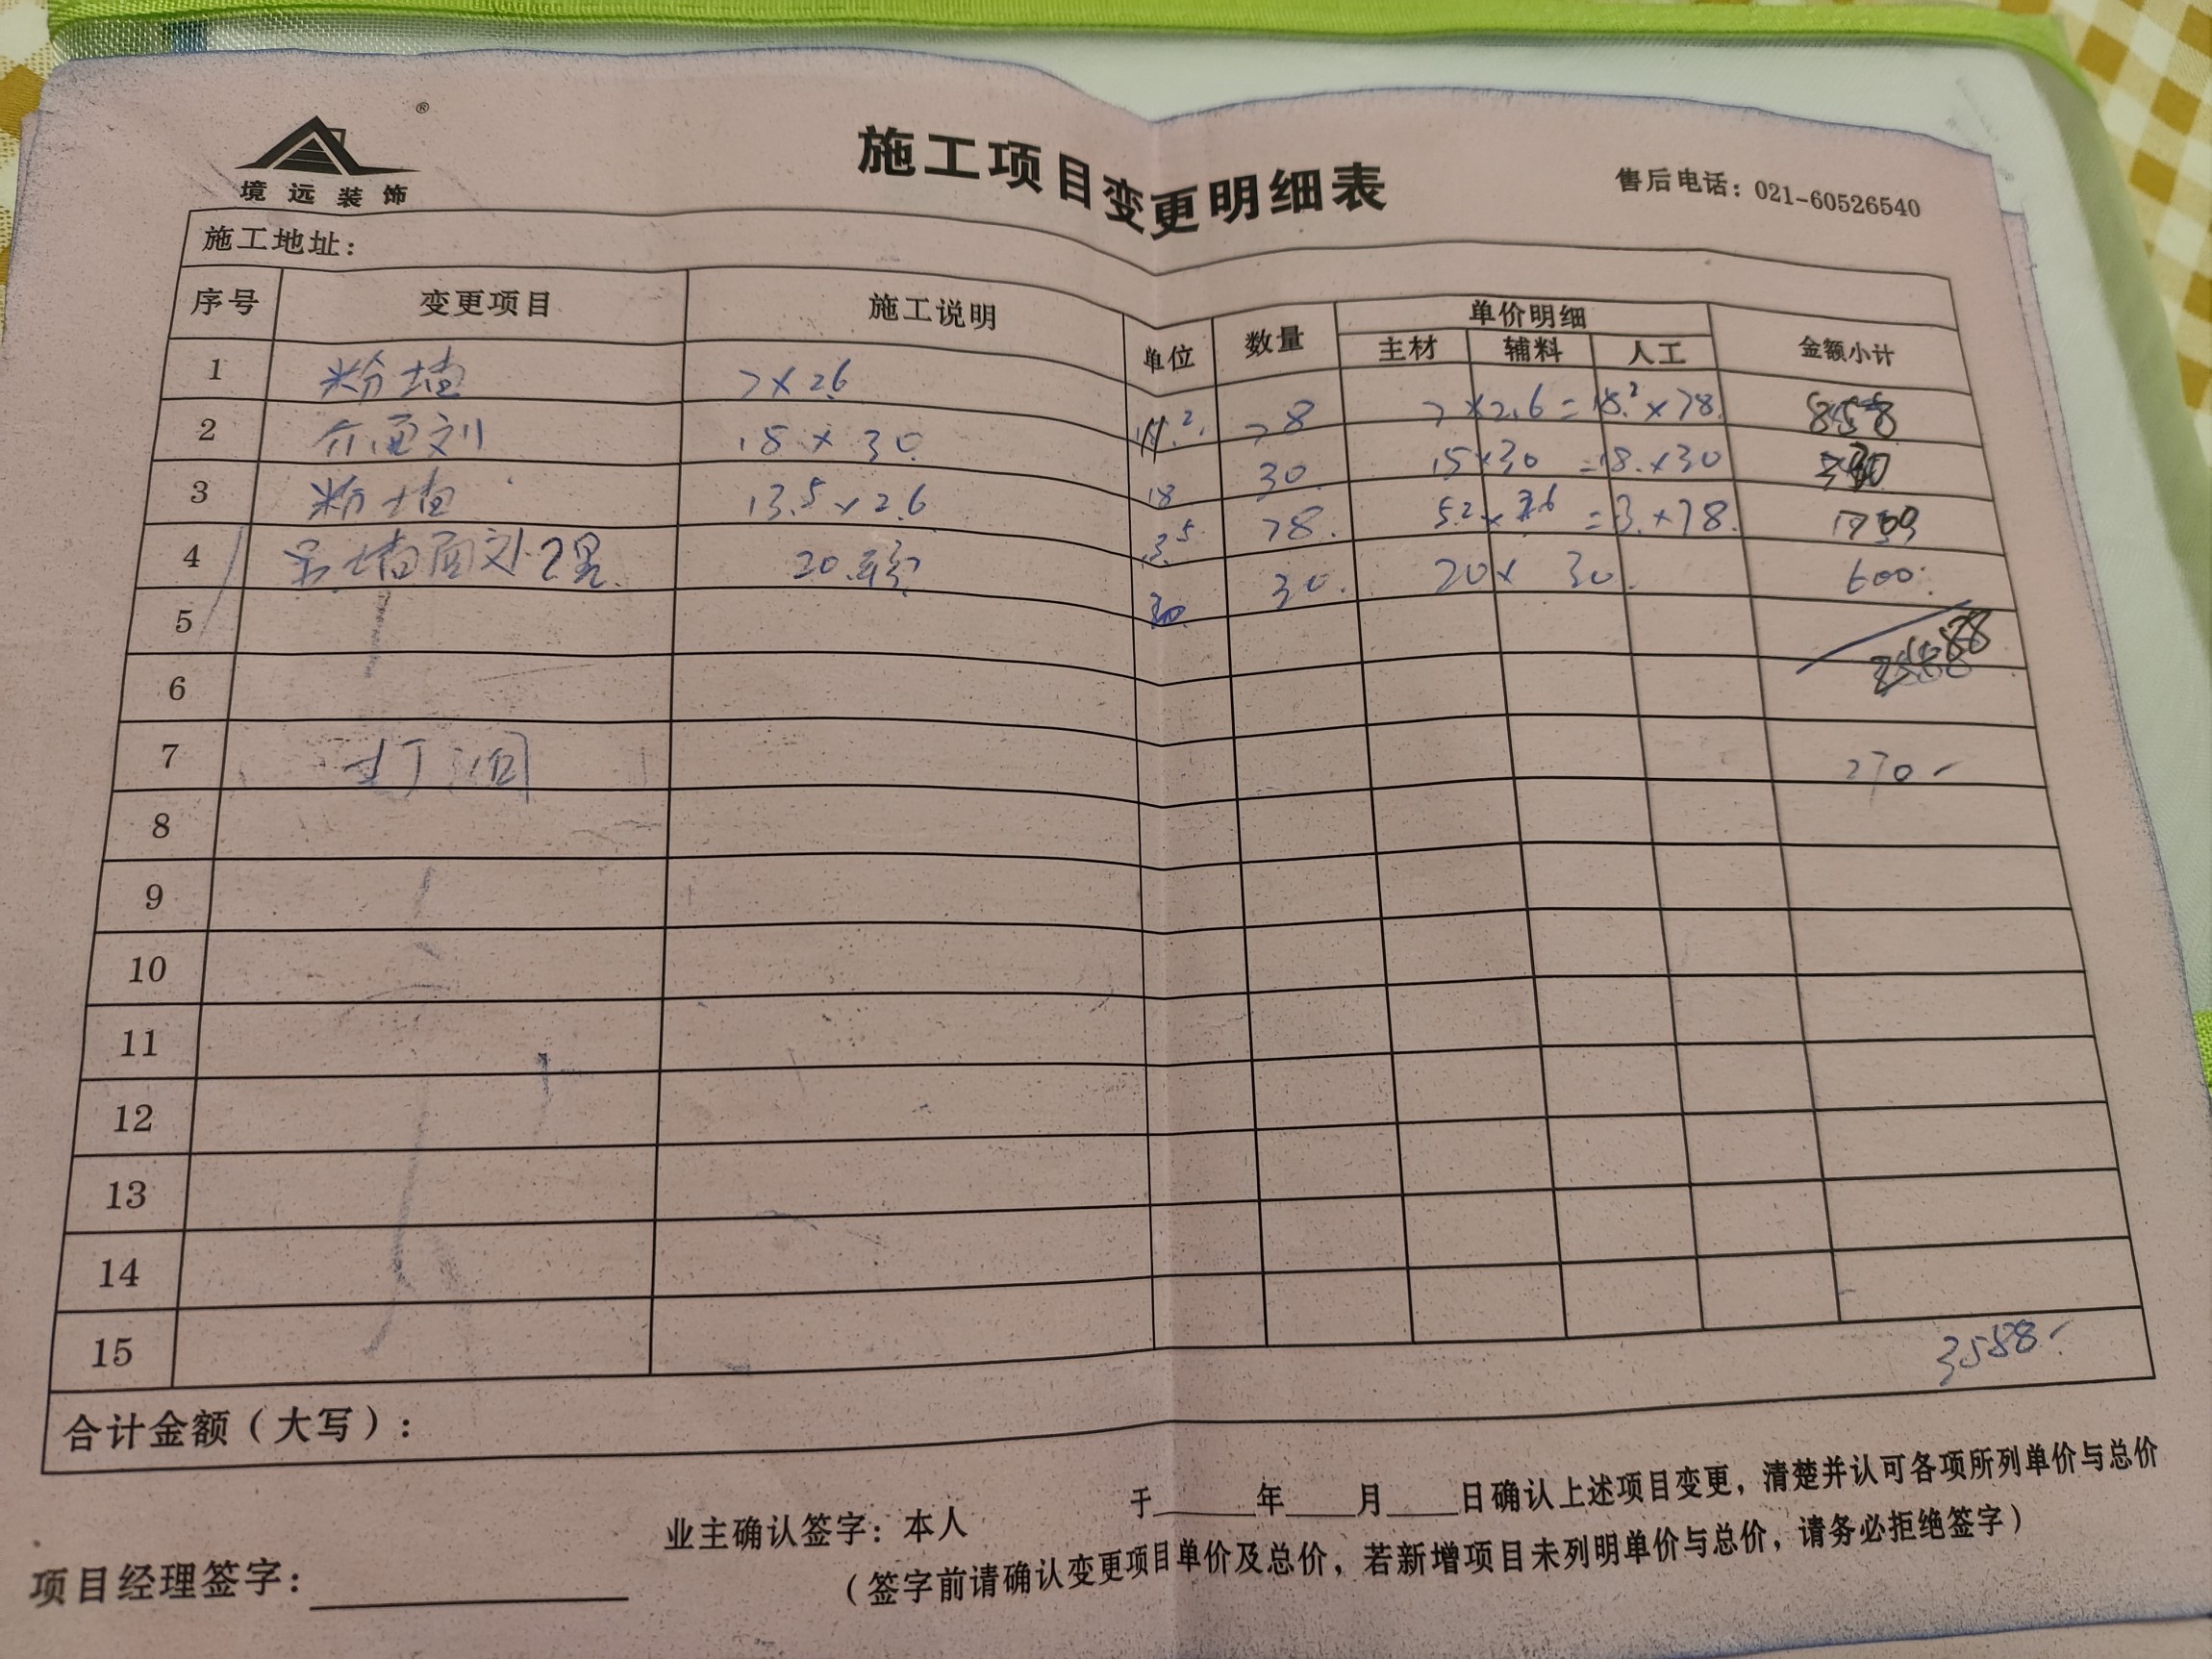 ®
境远装饰
施工项目变更明细表
售后电话：021-60526540
施工地址：
序号 变更项目 施工说明 单位 数量 单价明细 金额小计
主材 辅料 人工
1 粉墙 7×26 78 7×2.6=18.2×78.
2 介面刘 18×30 30 15×30=18.×30
3 粉墙 13.5×2.6 78. =3.×78.
4 墙面处理 20 30. 20×30. 600.
5
6
7 打洞 270-
8
9
10
11
12
13
14
15
3558-
合计金额（大写）：
业主确认签字：本人 于 年 月 日确认上述项目变更，清楚并认可各项所列单价与总价
项目经理签字：
（签字前请确认变更项目单价及总价，若新增项目未列明单价与总价，请务必拒绝签字）